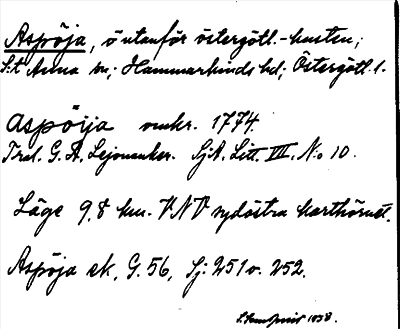 Aspöja, ö utanför östergötl.-kusten;
S:t Anna sn; Hammarkinds hd; Östergötl. l.
Aspöija omkr. 1774.
Trol. G. A. Lejonanker. SjK. Litt. III. No 10.
Läge 9,8 km. VNV sydöstra karthörnet.
Aspöja ek. G. 56, Sj: 251 o. 252.
1938.